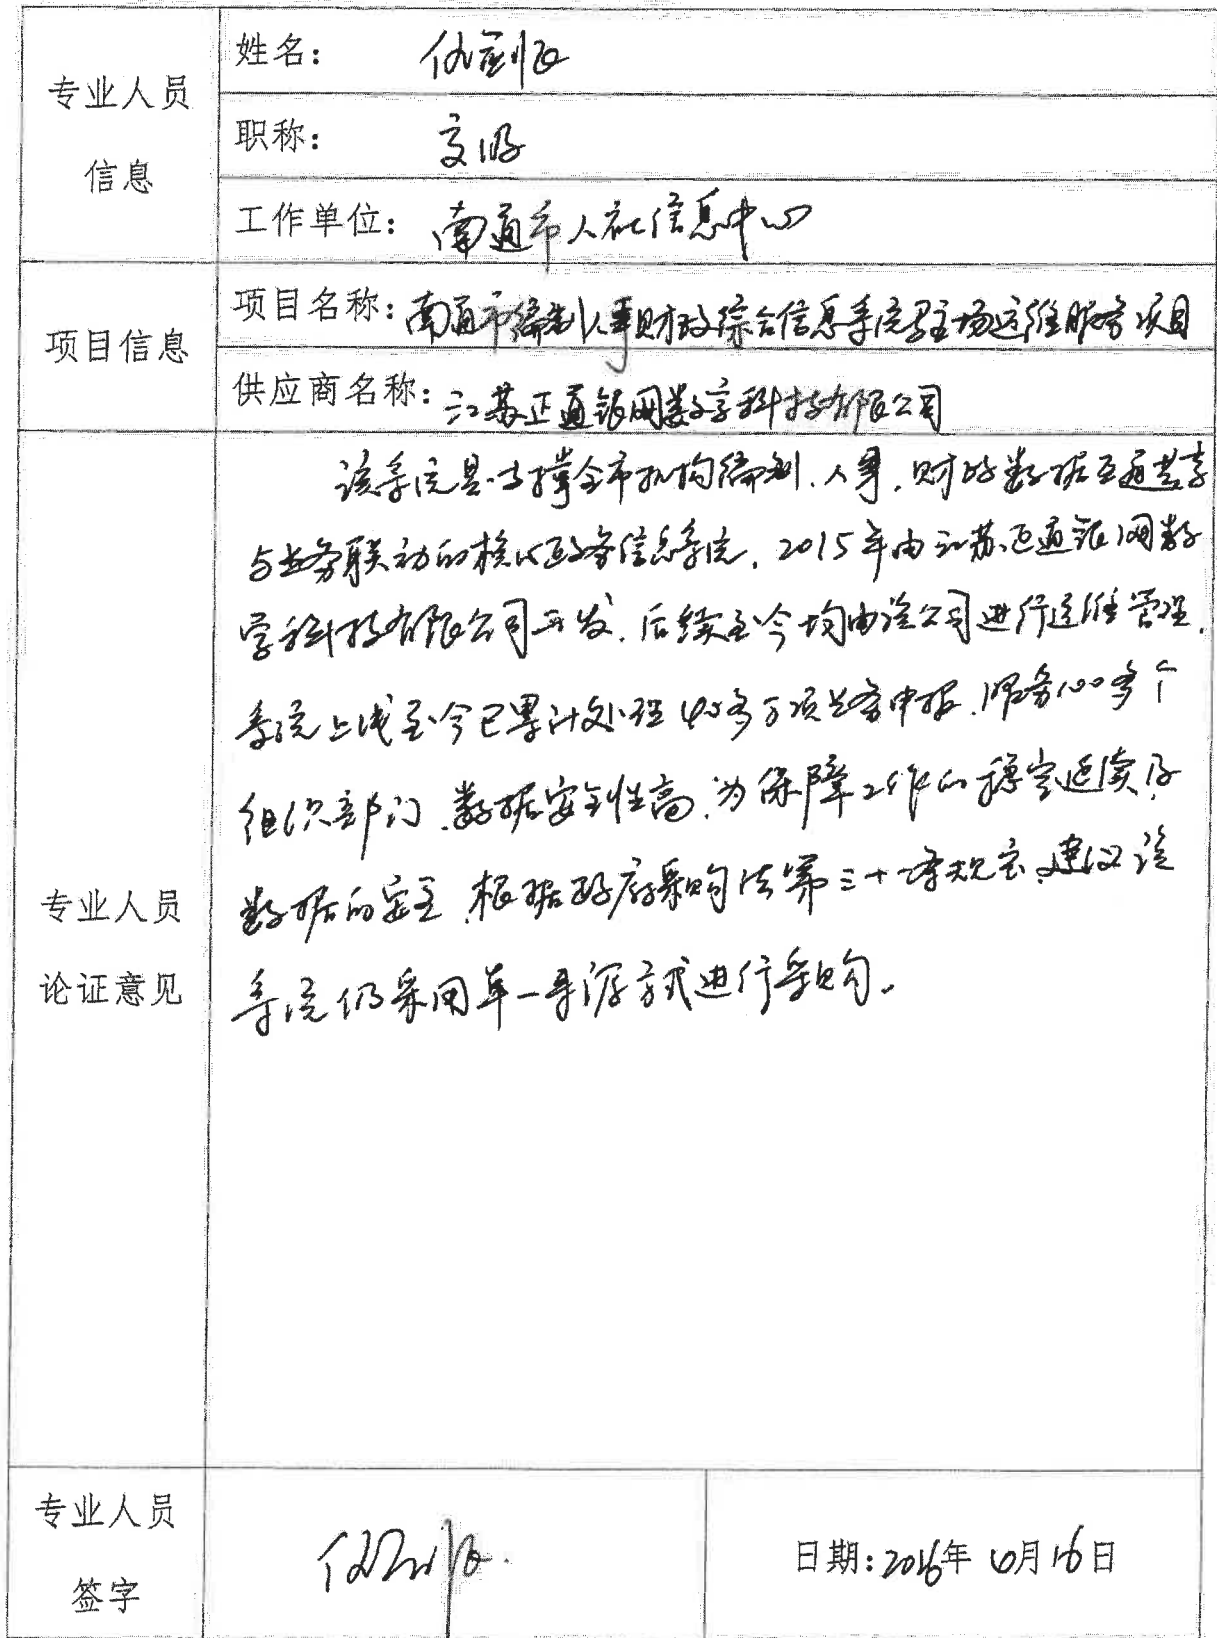 专业人员
信息
姓名：
职称：高工
工作单位：南通市人社信息中心
项目信息
项目名称：南通市编制人事财政综合信息系统驻场运维服务项目
供应商名称：江苏正通银网数字科技有限公司
专业人员
论证意见
该系统是支撑全市机构编制、人事、财政数据互通共享
与业务联动的核心政务信息系统，2015年由江苏正通银网数
字科技有限公司开发，后续至今均由该公司进行运维管理，
系统上线至今已累计处理40多万项业务申报，服务100多个
组织部门，数据安全性高，为保障工作的稳定延续及
数据的安全，根据政府采购法第三十一条规定，建议该
系统仍采用单一来源方式进行采购。
专业人员
签字
日期：年 月16日